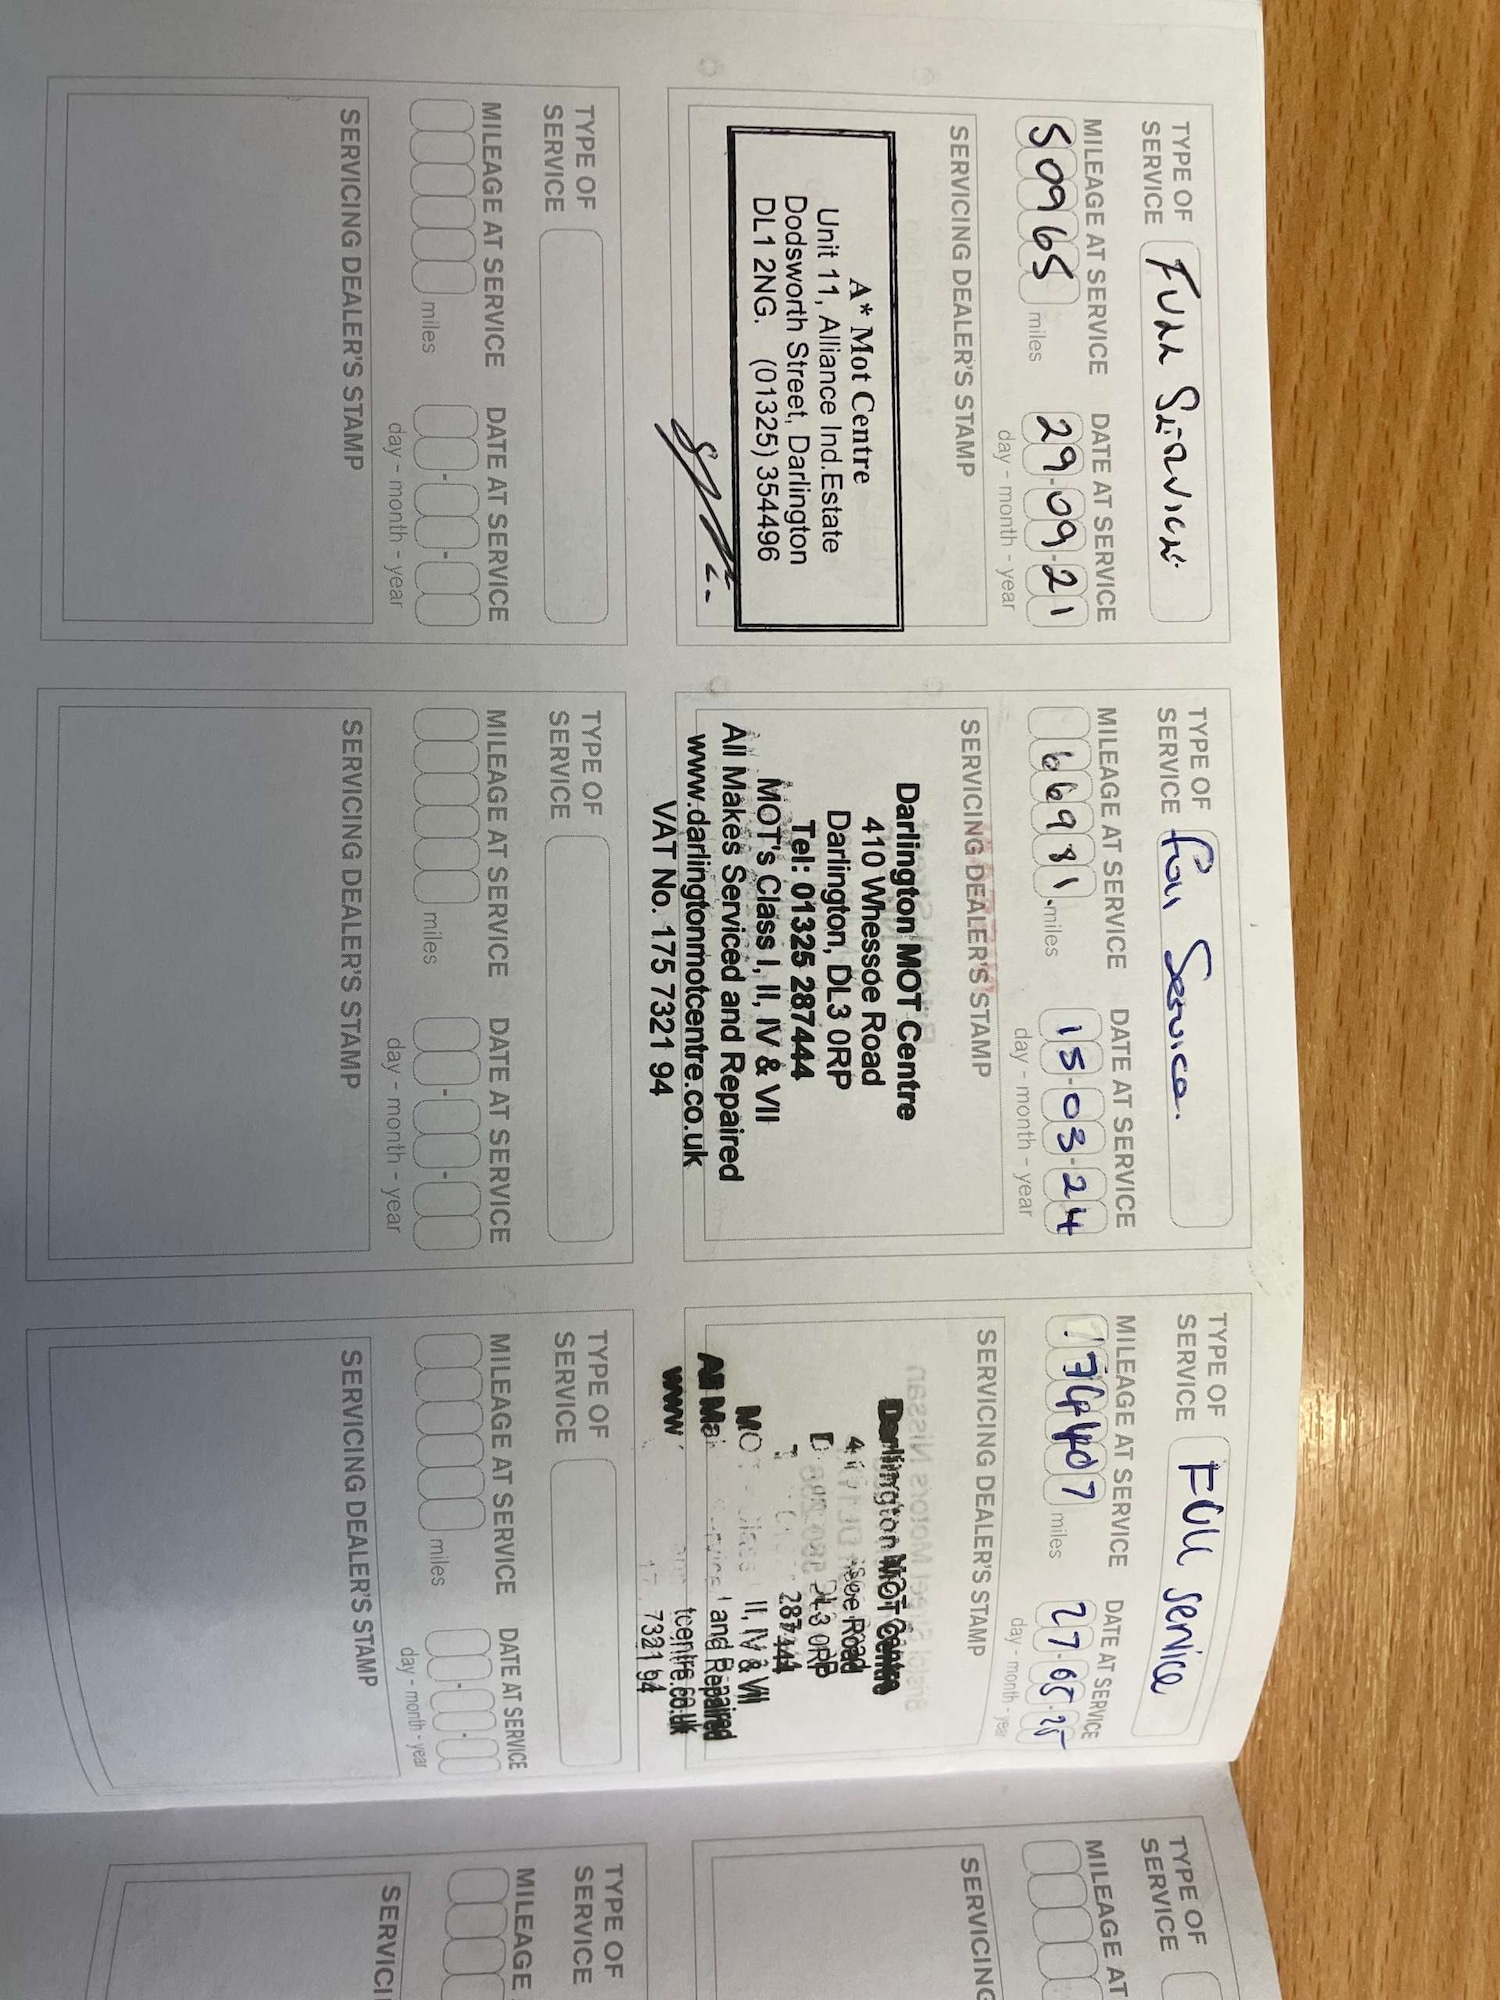 TYPE OF
SERVICE
FULL SERVICE
MILEAGE AT SERVICE
DATE AT SERVICE
50965 miles
29-09-21
day - month - year
SERVICING DEALER'S STAMP
A* Mot Centre
Unit 11, Alliance Ind.Estate
Dodsworth Street, Darlington
DL1 2NG. (01325) 354496
TYPE OF
SERVICE
Full Service.
MILEAGE AT SERVICE
DATE AT SERVICE
66981 miles
15-03-24
day - month - year
SERVICING DEALER'S STAMP
Darlington MOT Centre
410 Whessoe Road
Darlington, DL3 0RP
Tel: 01325 287444
MOT's Class I, II, IV & VII
All Makes Serviced and Repaired
www.darlingtonmotcentre.co.uk
VAT No. 175 7321 94
TYPE OF
SERVICE
Full service
MILEAGE AT SERVICE
DATE AT SERVICE
miles
27-05-25
day - month - year
SERVICING DEALER'S STAMP
Darlington MOT Centre
Road
DL3 0RP
287444
II, IV & VII
and Repaired
tcentre.co.uk
7321 94
TYPE OF
SERVICE
MILEAGE AT
SERVICING
TYPE OF
SERVICE
MILEAGE AT SERVICE
DATE AT SERVICE
miles
day - month - year
SERVICING DEALER'S STAMP
TYPE OF
SERVICE
MILEAGE AT SERVICE
DATE AT SERVICE
miles
day - month - year
SERVICING DEALER'S STAMP
TYPE OF
SERVICE
MILEAGE AT SERVICE
DATE AT SERVICE
miles
day - month - year
SERVICING DEALER'S STAMP
TYPE OF
SERVICE
MILEAGE
SERVICI